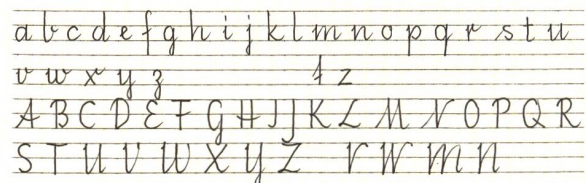 a b c d e f g h i j k l m n o p q r s t u
v w x y z f z
A B C D E F G H I J K L M N O P Q R
S T U V W X Y Z V W M N